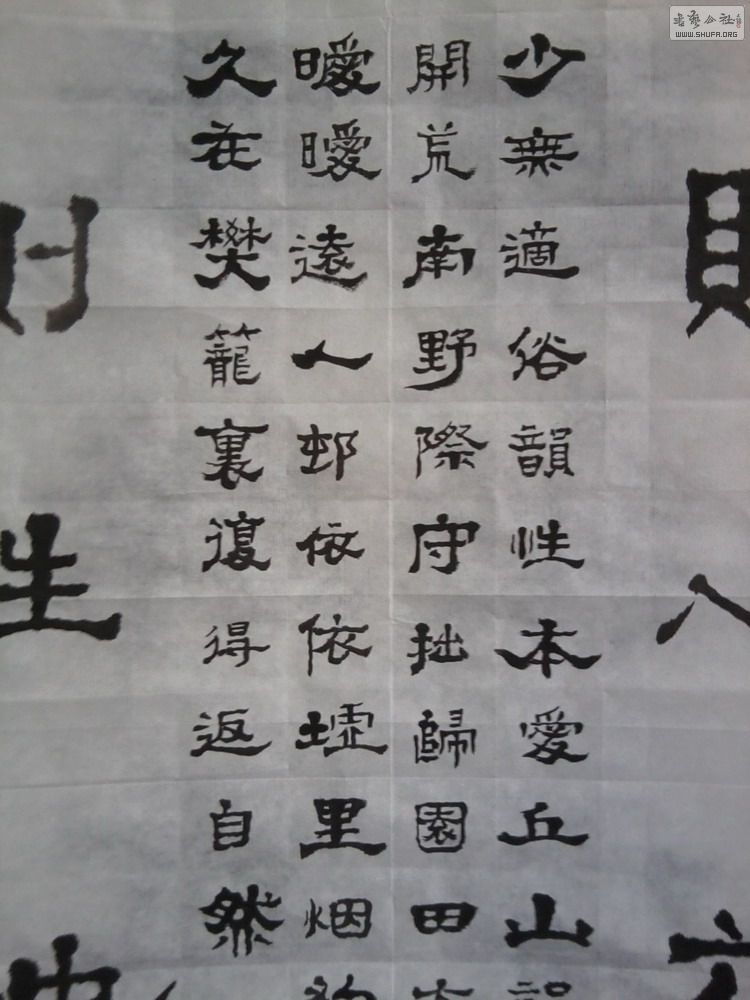 少無適俗韻性本愛丘山
開荒南野際守拙歸園田
曖曖遠人邨依依墟里烟
久在樊籠裏復得返自然
WWW.SHUFA.ORG